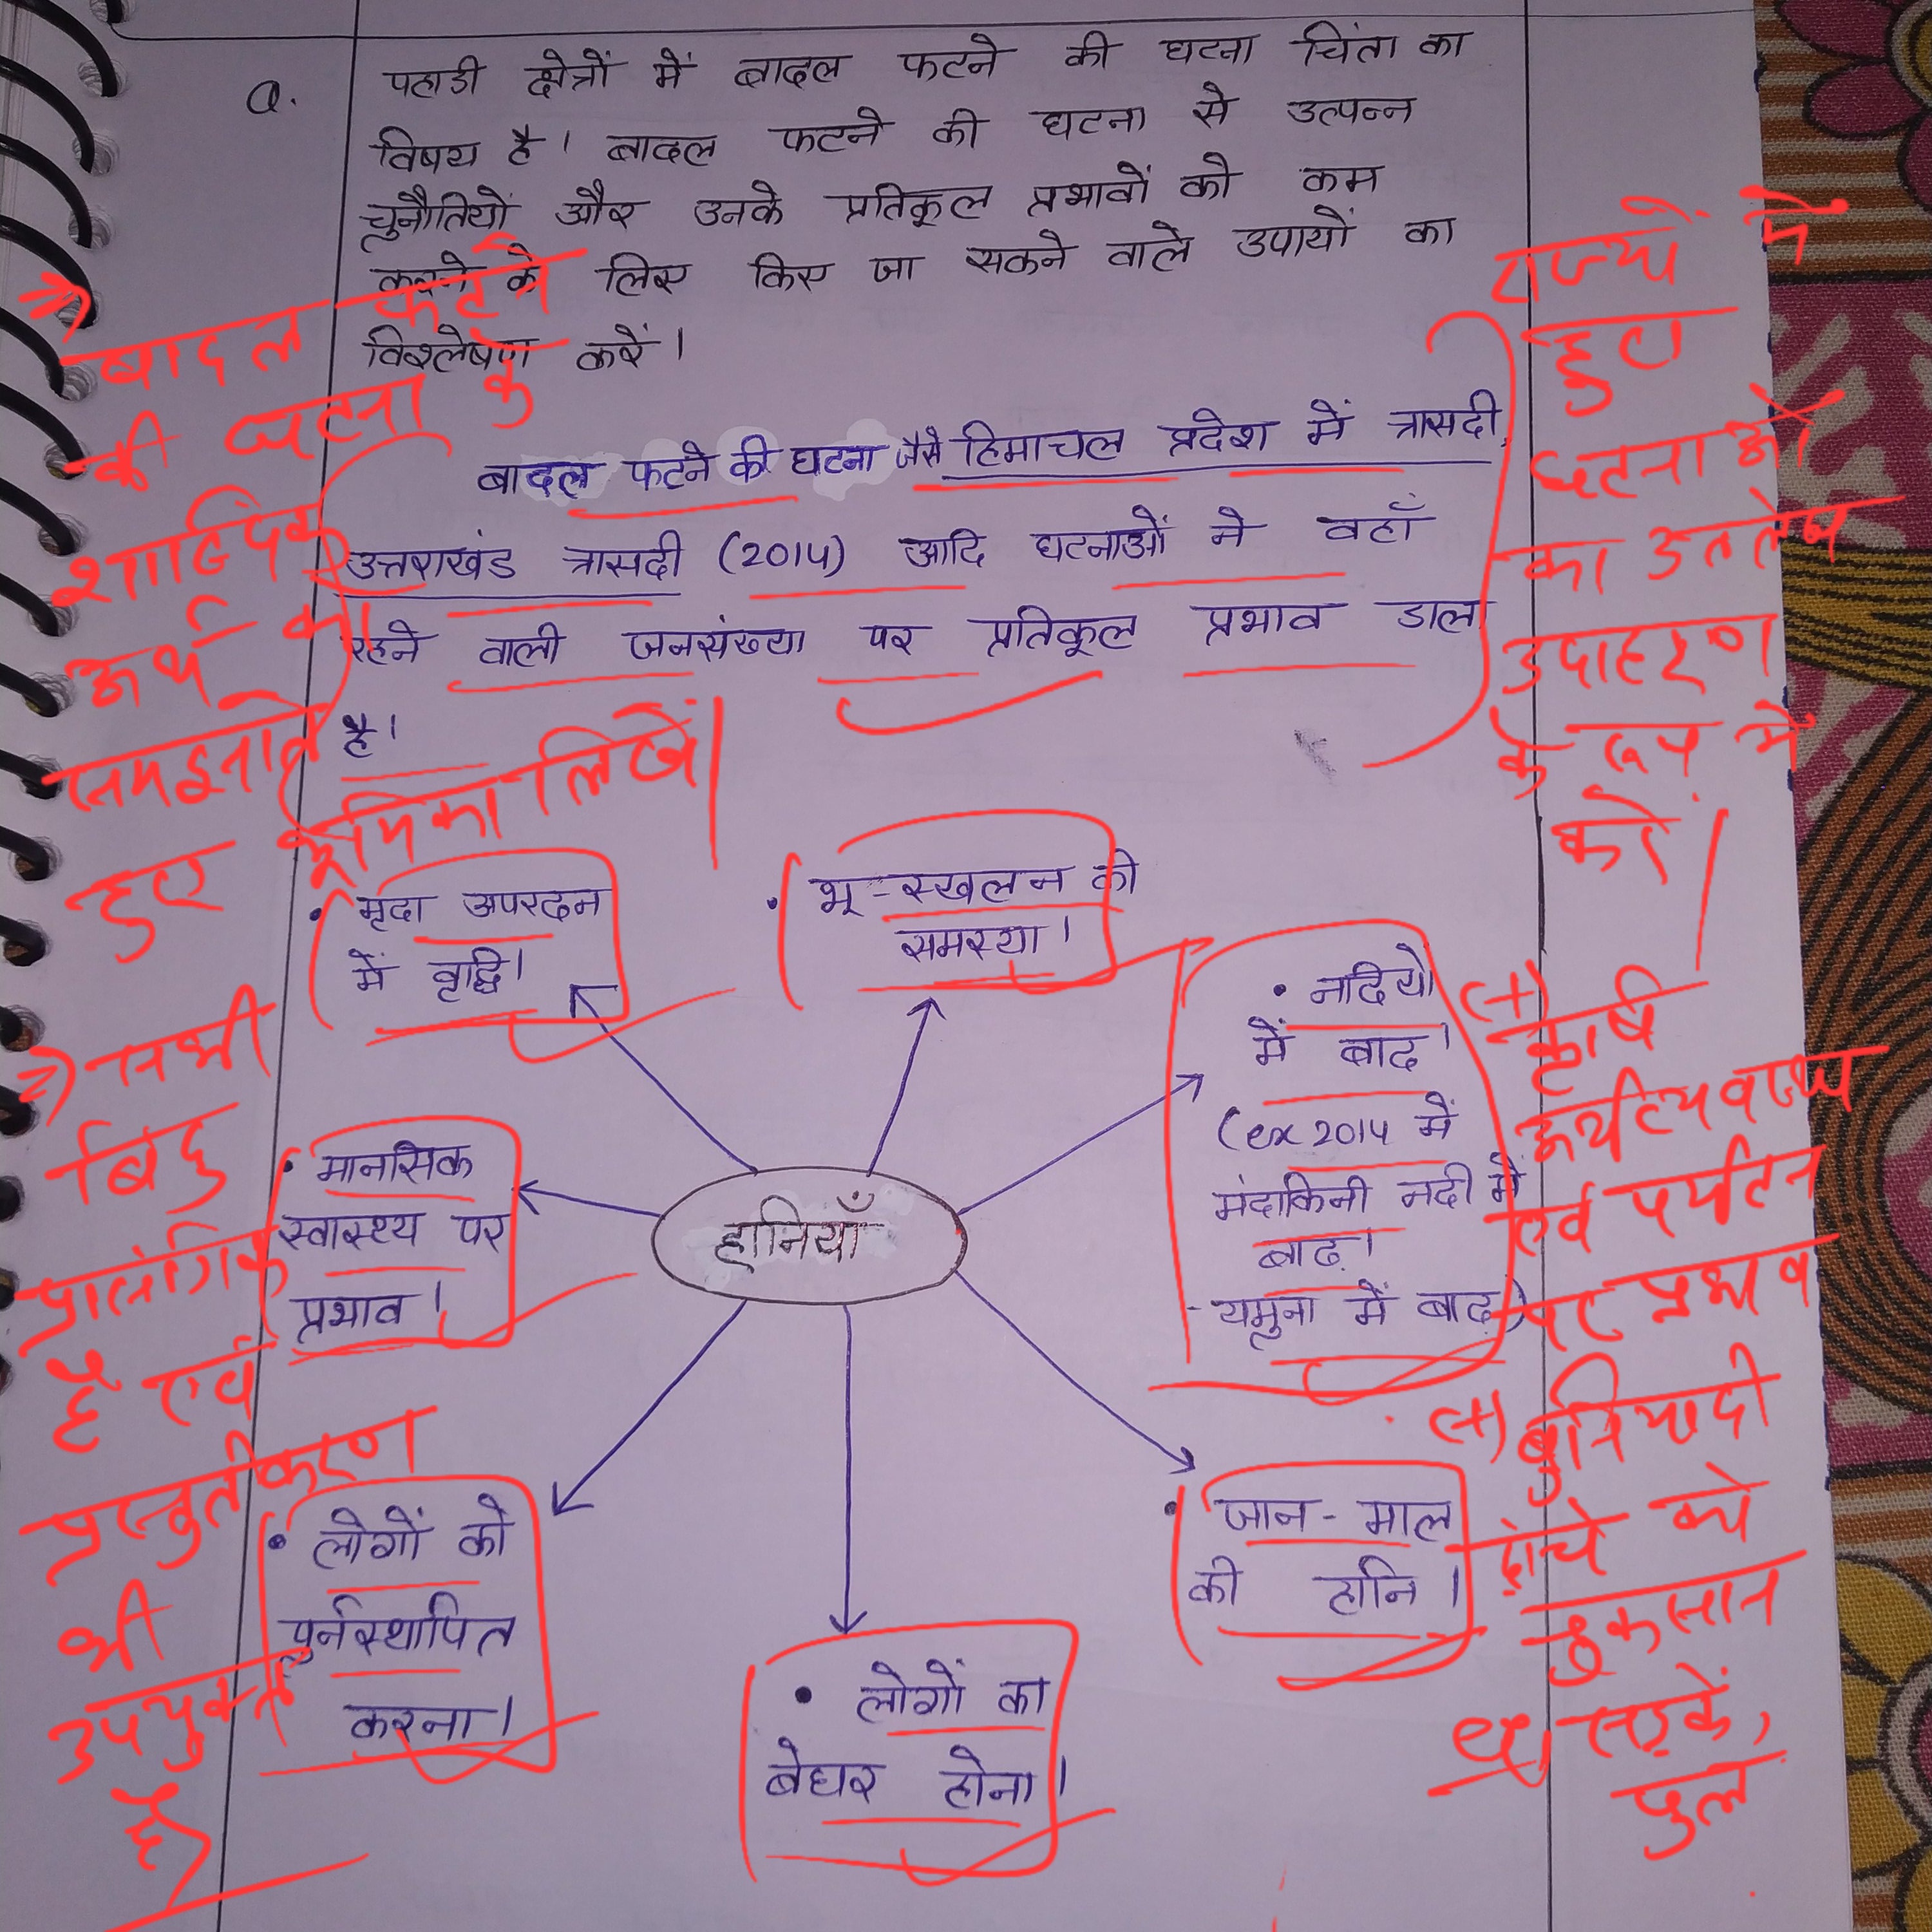 Q.
पहाडी क्षेत्रों में बादल फटने की घटना चिंता का
विषय है। बादल फटने की घटना से उत्पन्न
चुनौतियों और उनके प्रतिकूल प्रभावों को कम
करने के लिए किए जा सकने वाले उपायों का
विश्लेषण करें।
बादल फटने की घटना जैसे हिमाचल प्रदेश में त्रासदी,
उत्तराखंड त्रासदी (2014) आदि घटनाओं ने वहाँ
रहने वाली जनसंख्या पर प्रतिकूल प्रभाव डाला
है।
⇒ बादल फटने
की घटना के
शाब्दिक
अर्थ को
समझाते
हुए भूमिका लिखें।
राज्यों में
हुए
घटनाओं
का उल्लेख
उदाहरण
के रूप में
करें।
• मृदा अपरदन
में वृद्धि।
• भू-स्खलन की
समस्या।
• नदियों
में बाढ़।
(ex 2014 में
मंदाकिनी नदी में
बाढ़।
- यमुना में बाढ़)
• मानसिक
स्वास्थ्य पर
प्रभाव।
हानियाँ
• लोगों को
पुर्नस्थापित
करना।
• लोगों का
बेघर होना।
• जान-माल
की हानि।
⇒ सभी
बिंदु
प्रासंगिक
है एवं
प्रस्तुतीकरण
भी
उपयुक्त
है।
(+) कृषि
अर्थव्यवस्था
एवं पर्यटन
पर प्रभाव
(+) बुनियादी
ढांचे को
नुकसान
सड़कें,
पुल